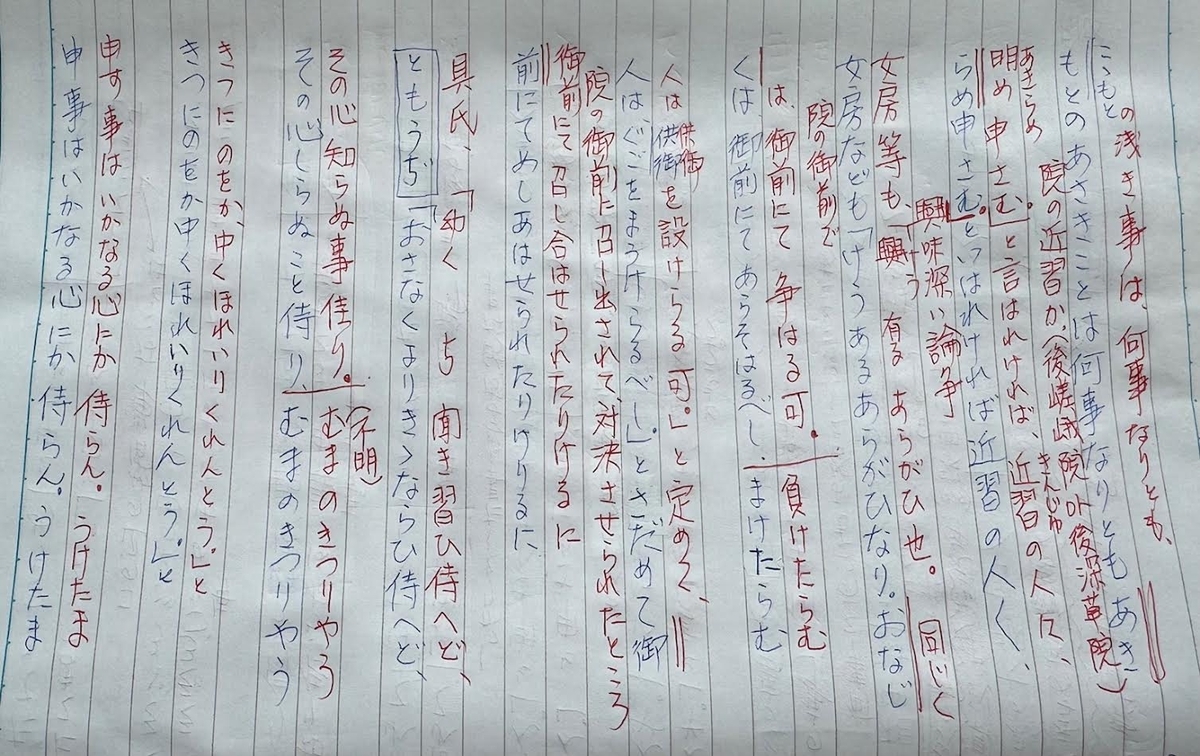 の浅き事は、何事なりとも、
こゝもと
もとのあさきことは何事なりともあき
院の近習か(後嵯峨院or後深草院)
あきらめ
明め申さむ」と言はれければ、近習の人々、
きんじゆ
らめ申さむ。」といはれければ近習の人々、
興味深い論争
女房等も、「興有るあらがひ也。同じく
けう
女房なども「けうあるあらがひなり。おなじ
院の御前で
は、御前にて争はる可。負けたらむ
くは、御前にてあらそはるべし。まけたらむ
供御
人は供御を設けらる可。」と定めて、
人は、ぐごをまうけらるべし」とさだめて御
院の御前に召し出されて、対決させられたところ
御前にて召し合はせられたりけるに
前にてめしあはせられたりけりるに、
具氏、「幼くち聞き習ひ侍へど、
ともうぢ「おさなくよりきゝならひ侍へど、
その心知らぬ事侍り。むまのきつりやう
(不明)
その心しらぬこと侍り、むまのきつりやう
きつにのをか、中くほれいりくれんとう。」と
きつにのをか中くほれいりくれんとう。」と
申す事はいかなる心にか侍らん。うけたま
申事はいかなる心にか侍らん。うけたま